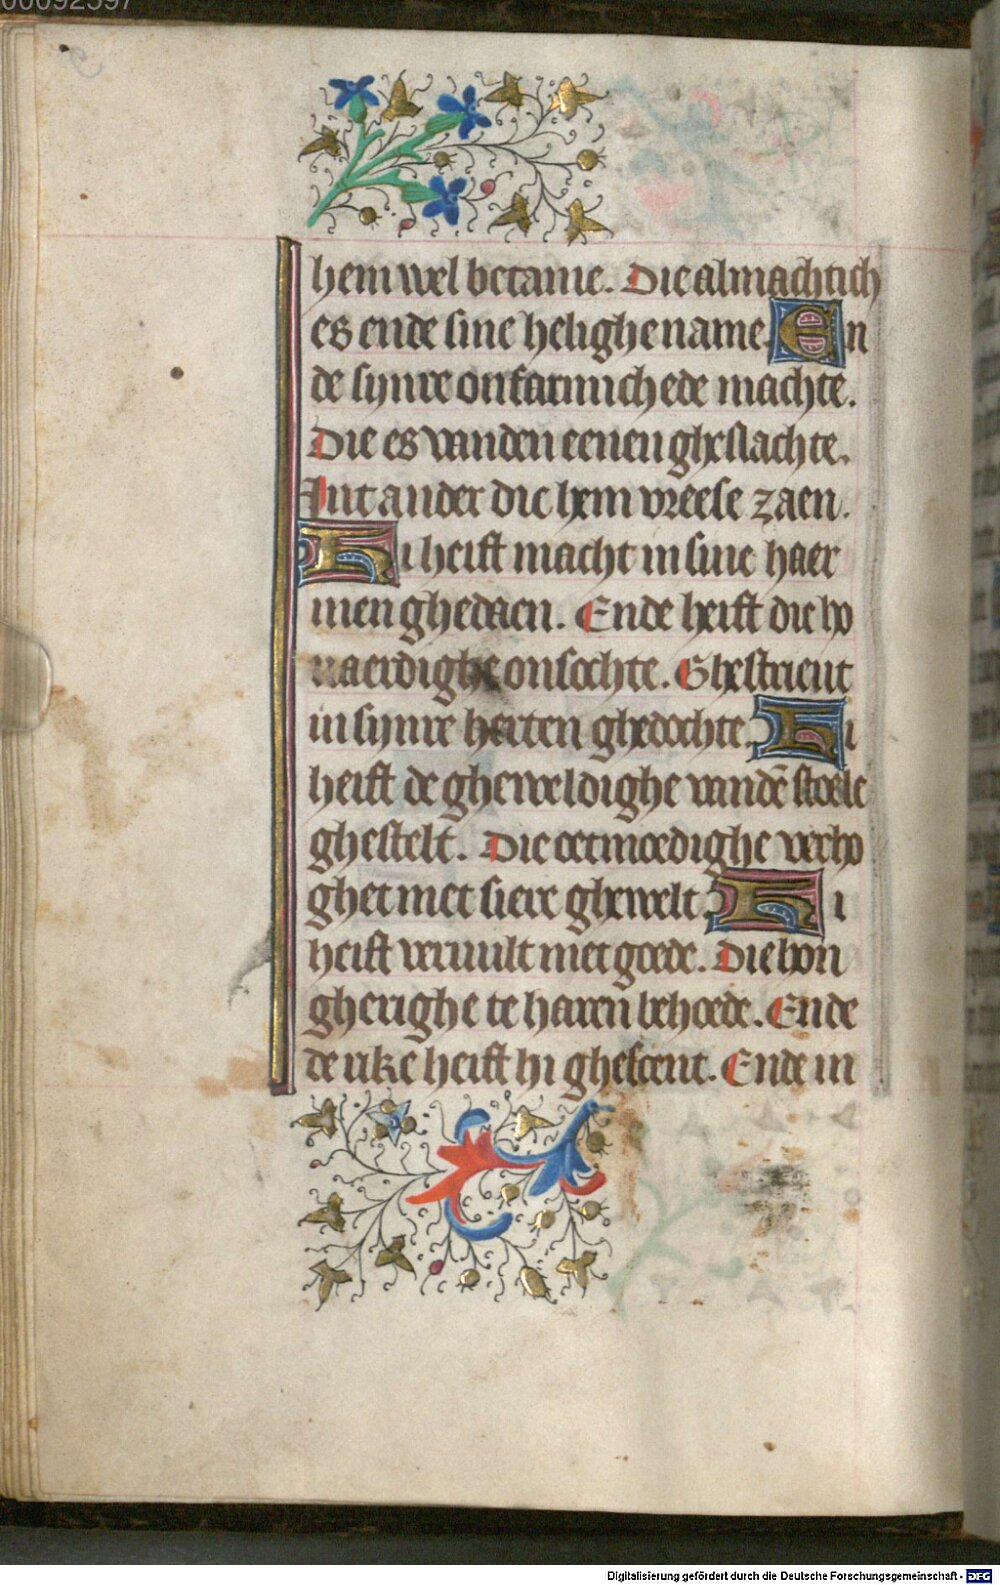 00092597
hem wel betame. Die almachtich
es ende sine helighe name. En
de synre ontfarmichede machte.
Die es vanden eenen gheslachte.
Int ander die hem vreese zaen.
Hi heift macht in sine haer
men ghedaen. Ende heift die ho
uaerdighe onsochte. Ghestrieut
in synre herten ghedochte. Hi
heift de gheweldighe vandē stoele
ghestelt. Die oetmoedighe verho
ghet met siere ghewelt. Hi
heift veruult met goede. Die hon
gherighe te haren behoede. Ende
de rike heift hi ghescent. Ende in
Digitalisierung gefördert durch die Deutsche Forschungsgemeinschaft - DFG